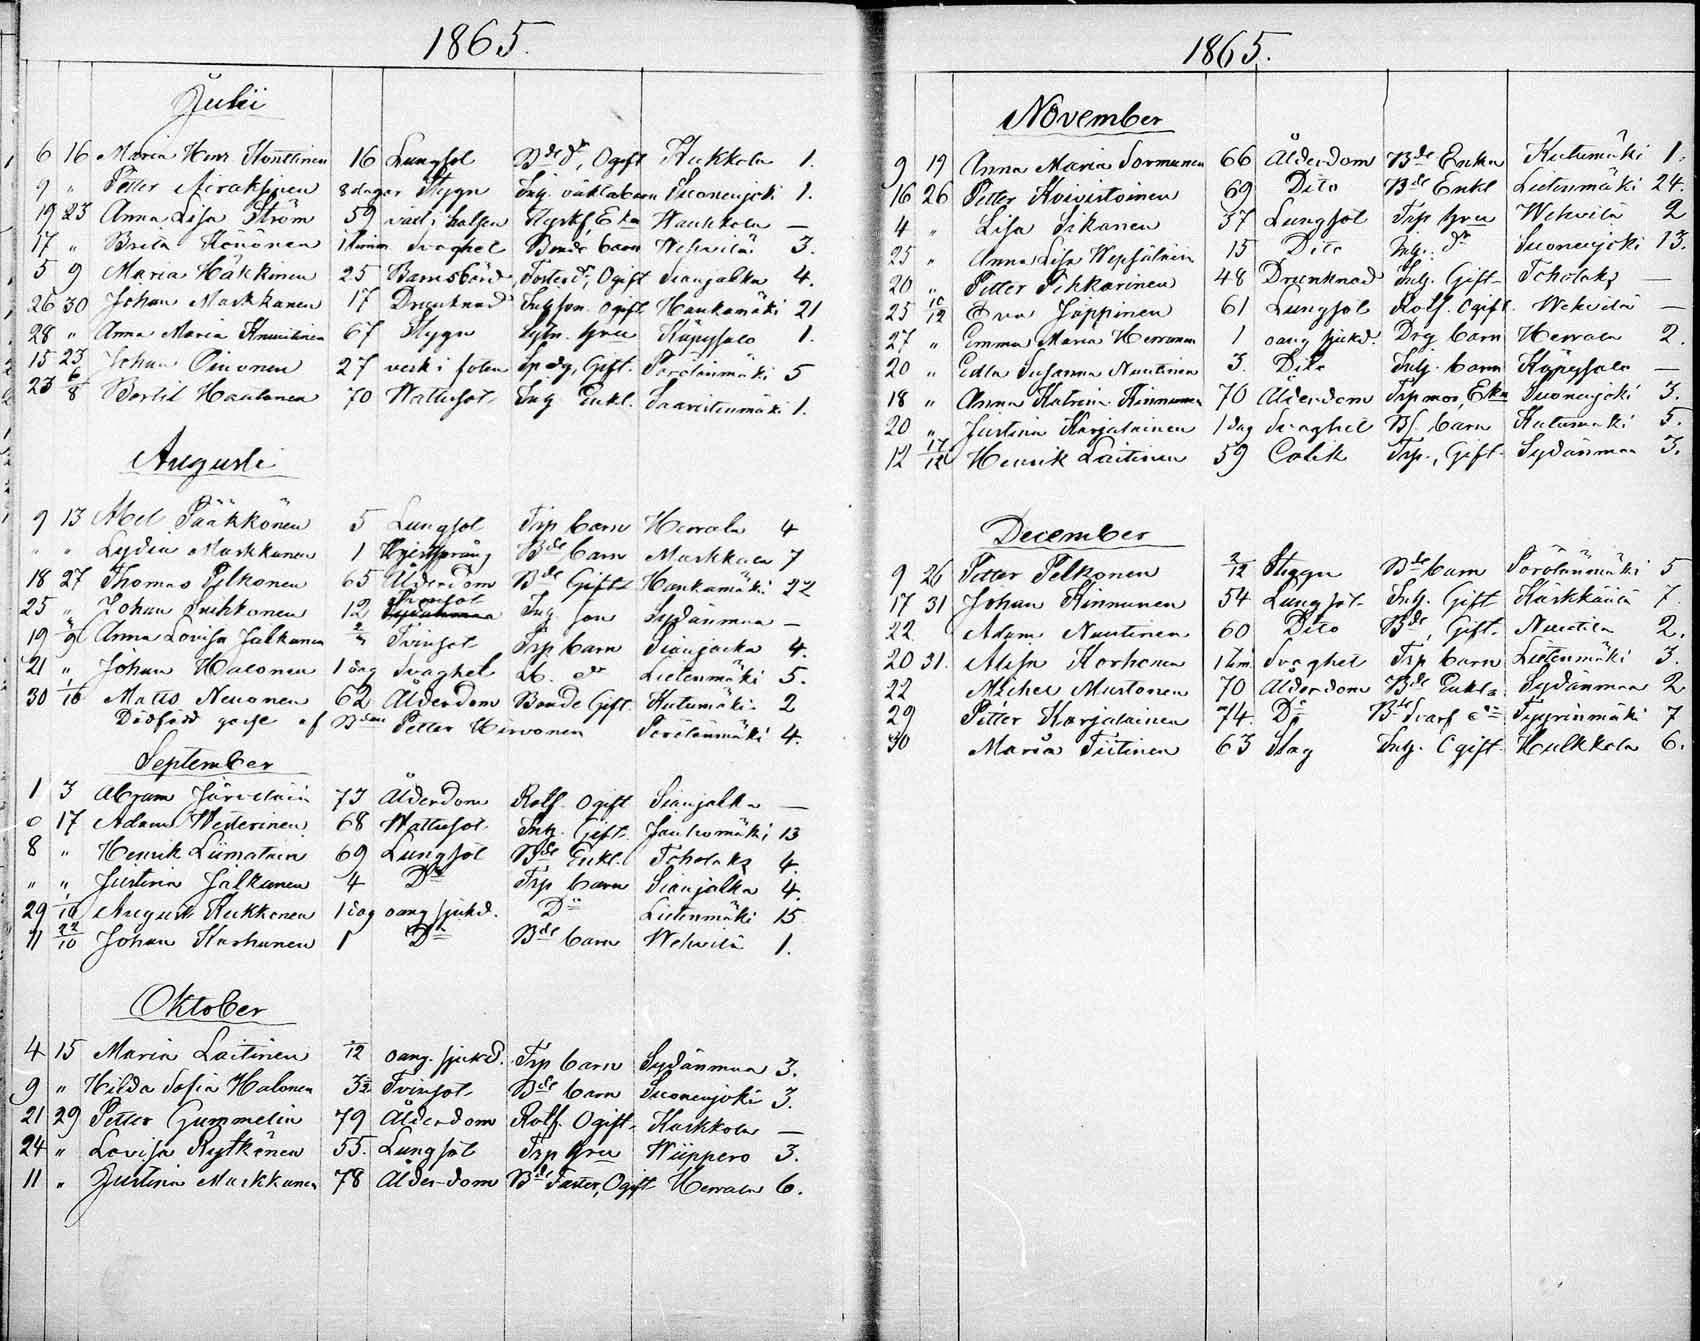 1865.
Julii
6 16 Maria Henr Konttinen 16 Lungsot Bde dr, Ogift Kukkola 1.
9 " Petter Airaksinen 8 dagar Stygn Inh. barn Suonenjoki 1.
19 23 Anna Lisa Ström 59 värk i halsen Enka Kaukkola —
17 " Brita Könönen 1 timm Svaghet Bonde barn Wehvilä 3.
5 9 Maria Häkkinen 25 Barnsbörd Ogift Sianjalka 4.
26 30 Johan Markkanen 17 Drunknad Inh son. ogift Haukamäki 21
28 " Anna Maria Knuutinen 67 Stygn hru Käpysalo 1.
15 23 Johan Oinonen 27 verk i foten Gift. Pörölänmäki 5
23 6/8 Bertil Hautonen 70 Wattusot Inh Enkl. Saaristenmäki 1.
Augusti
9 13 Abel Pääkkönen 5 Lungsot Trp barn Herrala 4
" " Lydia Markkanen 1 Bde barn Markkala 7
18 27 Thomas Pylkonen 65 Ålderdom Bde Gift Haukamäki 22
25 " Johan Suihkonen 12 Tvinsot Inh son Sydänmaa —
19 Anna Lovisa Jalkanen Tvinsot Trp barn Sianjalka 4.
21 " Johan Halonen 1 dag Svaghet Lietenmäki 5.
30 1/10 Matts Nenonen 62 Ålderdom Bonde Gift. Kutumäki 2
Dödfödd gosse af Bden Petter Hirvonen Pörölänmäki 4.
September
1 3 Abram Järvelain 73 Ålderdom Rotf. Ogift Sianjalka —
6 17 Adam Westerinen 68 Wattusot Inh. Gift. Jauhomäki 13
8 " Henrik Liimatain 69 Lungsot Bde Enkl. Tcholaks 4.
" " Justina Jalkanen 4 Do Trp barn Sianjalka 4.
29 1/10 August Kukkonen 1 dag oang sjukd. Do Lietenmäki 15
11 22/10 Johan Karhunen 1 Do Bde barn Wehvilä 1.
Oktober
4 15 Maria Laitinen /12 oang. sjukd. Trp barn Sydänmaa 3.
9 " Hilda Sofia Halonen Tvinsot Bde barn Suonenjoki 3.
21 29 Petter Gummelin 79 Ålderdom Rotf. Ogift Karkkola —
24 " Lovisa Rytkönen 55. Lungsot Trp hru Wiippero 3.
11 " Justina Markkanen 78 Ålderdom Bde Faster, Ogift Herrala 6.
1865.
November
9 19 Anna Maria Sormunen 66 Ålderdom Bde Enka Kutumäki 1.
16 26 Petter Koivistoinen 69 Dito Bde Enkl Lietenmäki 24.
4 " Lisa Sikanen 37 Lungsot Trp hru Wehvilä 2
25 " Anna Lisa Wepsäläin 15 Dito Inh. dr Suonenjoki 13.
20 " Petter Pihkarinen 48 Drunknad Inh. Gift Tcholaks —
25 10/12 Eva Jäppinen 61 Lungsot Rotf. Ogift. Wehvilä —
27 " Emma Maria Herranen 1 oang sjukd. Drg barn Herrala 2.
20 " Edla Susanna Nuutinen 3. Dito Inh. barn Käpysalo —
18 " Anna Katrina Kinnunen 70 Ålderdom Trp mor, Eka Suonenjoki 3.
20 " Justina Karjalainen 1 dag Svaghet barn Kutumäki 5.
12 17/12 Henrik Laitinen 59 Colik Trp., Gift Sydänmaa 3.
December
9 26 Petter Pelkonen 2/12 Stygn Bde barn Pörölänmäki 5
17 31 Johan Kinnunen 54 Lungsot Inh. Gift Kärkkäälä 7.
22 Adam Nuutinen 60 Dito Bde, Gift. Nuutila 2.
20 31. Alisa Korhonen 1 tim. Svaghet Trp barn Lietenmäki 3.
22 Michel Mustonen 70 Ålderdom Bde Enkl. Sydänmaa 2
29 Petter Karjalainen 74. Do Tyyrinmäki 7
30 Maria Tiitinen 63 Slag Inh. Ogift Hulkkola 6.